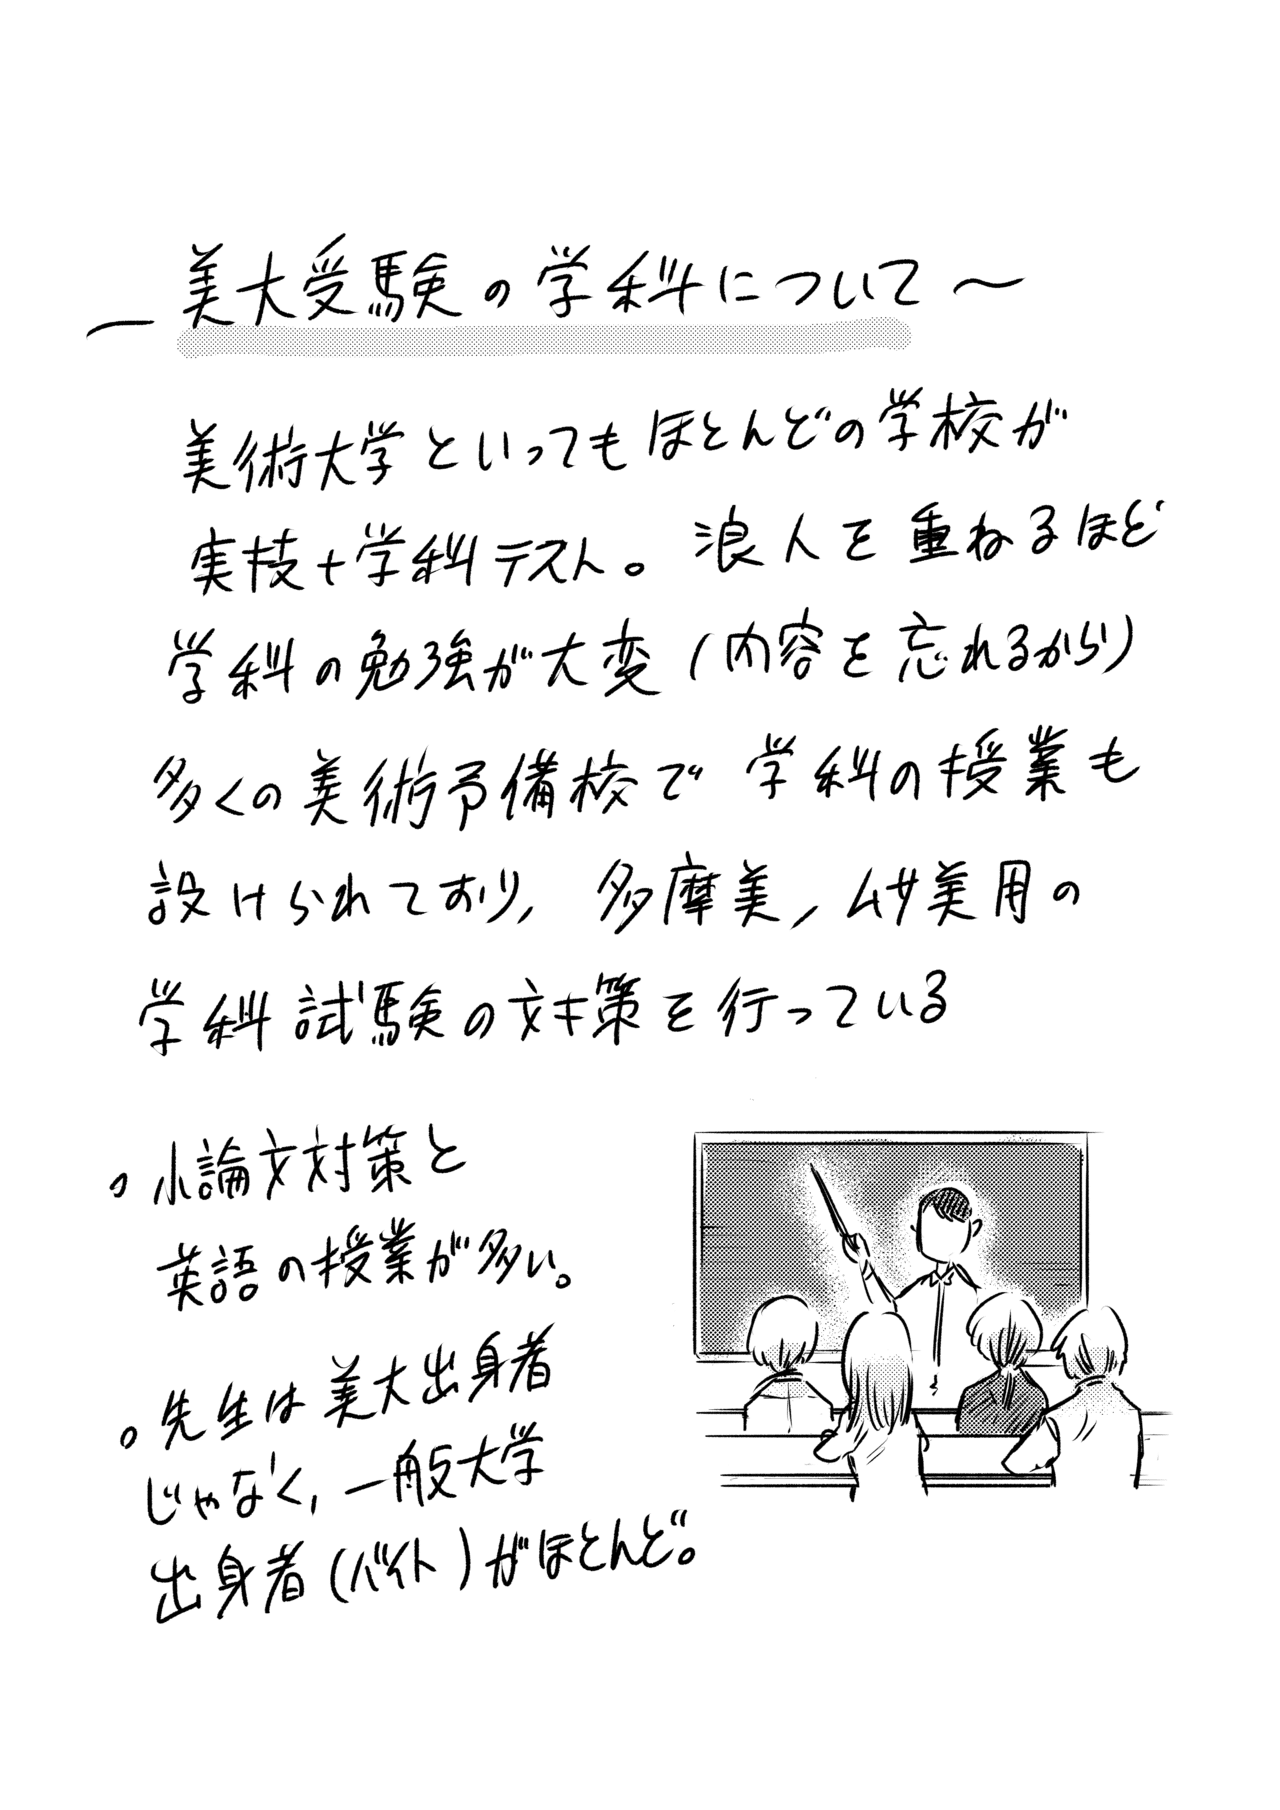 ―美大受験の学科について～
美術大学といってもほとんどの学校が
実技+学科テスト。浪人を重ねるほど
学科の勉強が大変(内容を忘れるから)
多くの美術予備校で学科の授業も
設けられており、多摩美、ムサ美用の
学科試験の対策を行っている
。小論文対策と
英語の授業が多い。
。先生は美大出身者
じゃなく、一般大学
出身者(バイト)がほとんど。